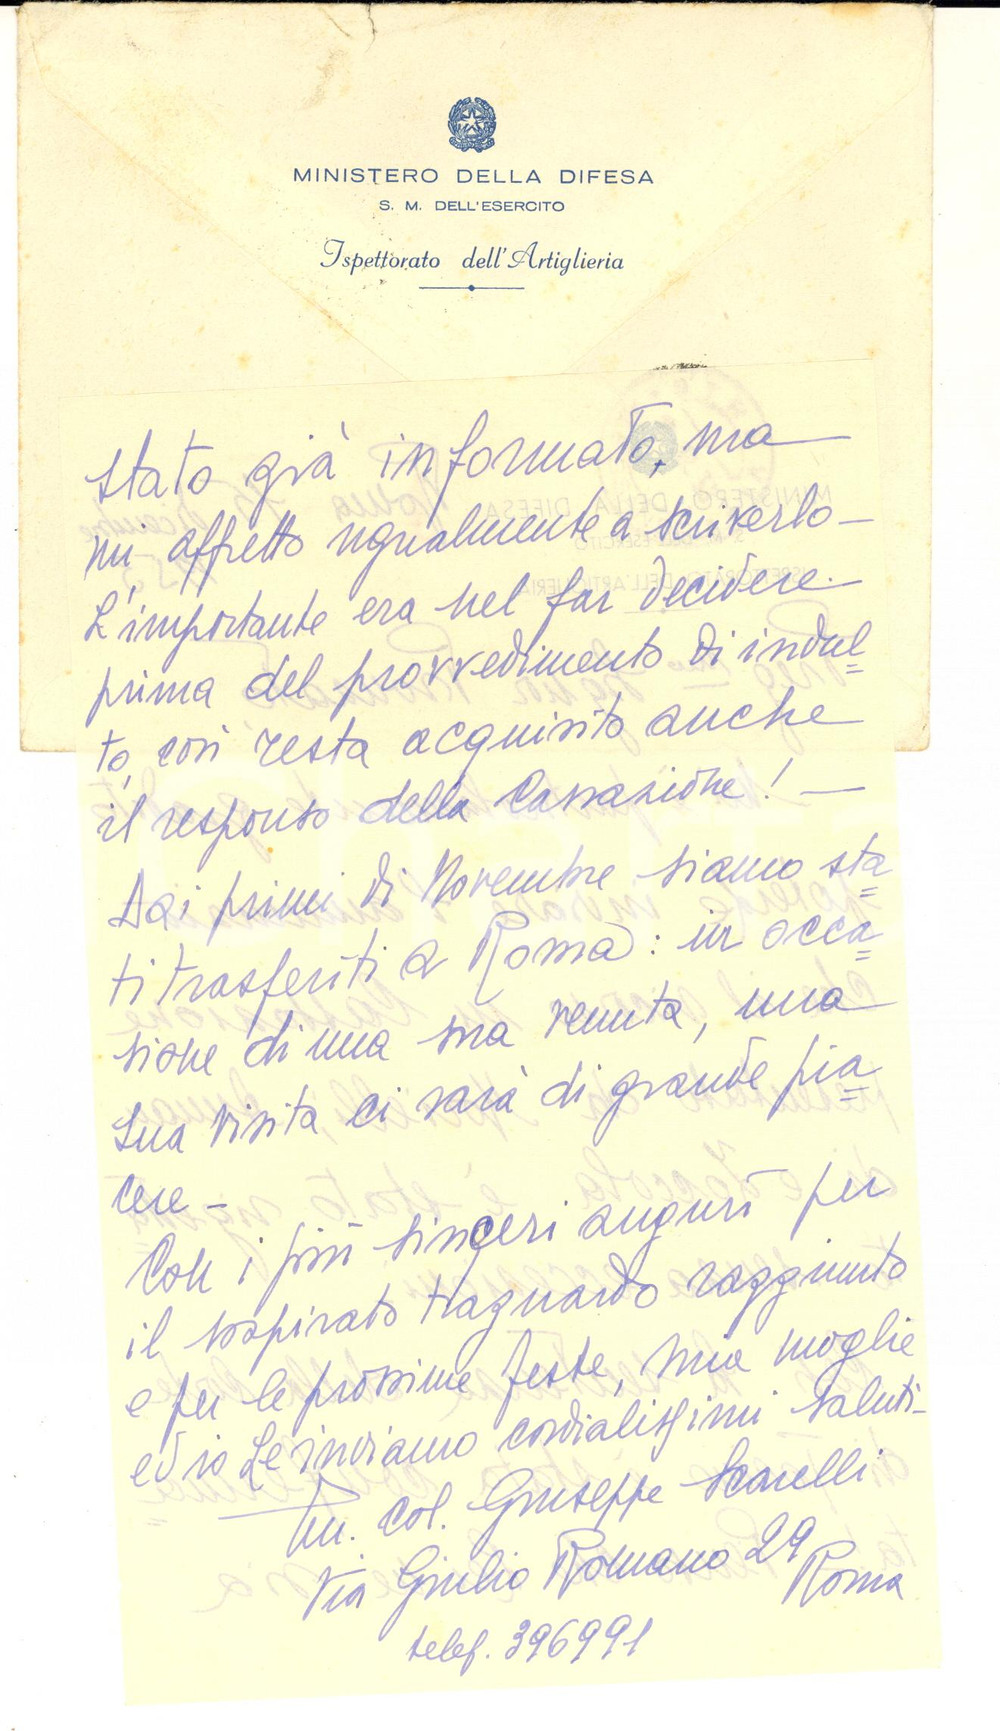 MINISTERO DELLA DIFESA
S. M. DELL'ESERCITO
Ispettorato dell'Artiglieria
stato già informato, ma
mi affretto ugualmente a scriverlo -
L'importante era nel far decidere
prima del provvedimento di indul=
to, così resta acquisito anche
il responso della Cassazione! -
Dai primi di Novembre siamo sta=
ti trasferiti a Roma: in occa=
sione di una sua venuta, una
Sua visita ci sarà di grande pia=
cere -
Con i più sinceri auguri per
il sospirato traguardo raggiunto
e per le prossime feste, mia moglie
ed io Le inviamo cordialissimi saluti -
Ten. col. Giuseppe Scarelli
Via Giulio Romano 29
Roma
telef. 396991